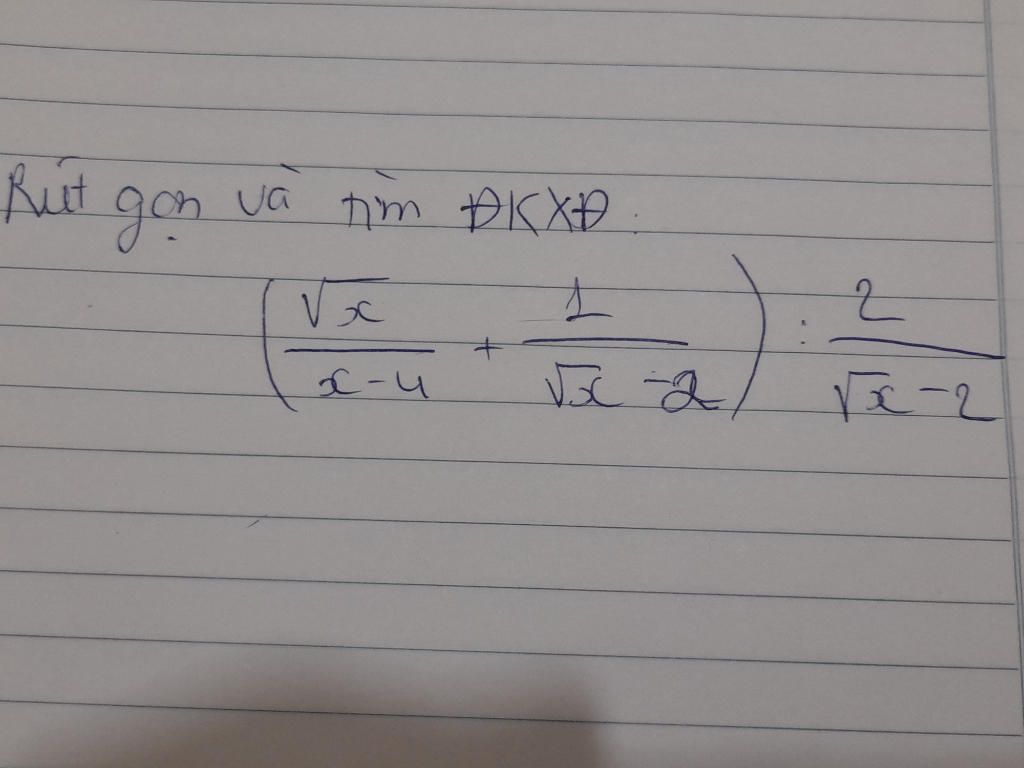 Rút gọn và tìm ĐKXĐ:
(√x/(x-4) + 1/(√x-2)) : 2/(√x-2)